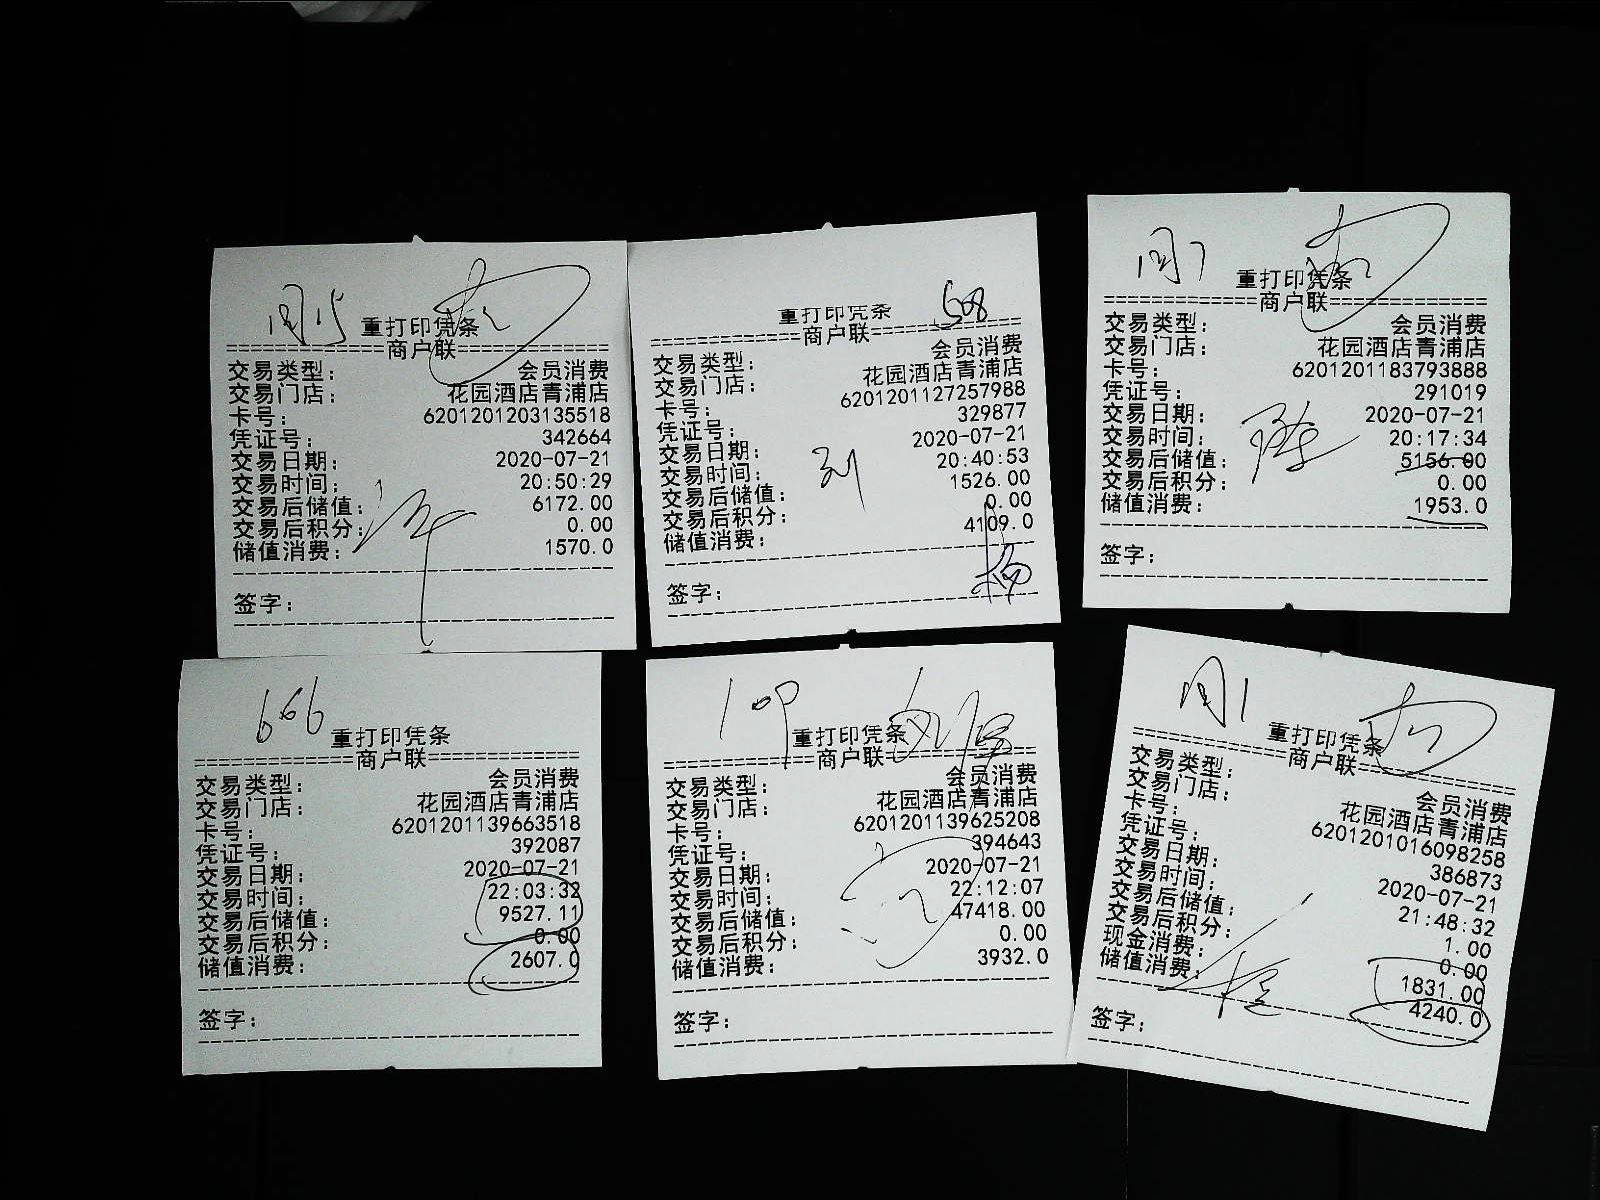 闵15
重打印凭条
==============商户联==============
交易类型： 会员消费
交易门店： 花园酒店青浦店
卡号： 6201201203135518
凭证号： 342664
交易日期： 2020-07-21
交易时间： 20:50:29
交易后储值： 6172.00
交易后积分： 0.00
储值消费： 1570.0
签字：
508
重打印凭条
==============商户联==============
交易类型： 会员消费
交易门店： 花园酒店青浦店
卡号： 6201201127257988
凭证号： 329877
交易日期： 2020-07-21
交易时间： 20:40:53
交易后储值： 1526.00
交易后积分： 0.00
储值消费： 4109.0
刘
杨
签字：
闵7
重打印凭条
==============商户联==============
交易类型： 会员消费
交易门店： 花园酒店青浦店
卡号： 6201201183793888
凭证号： 291019
交易日期： 2020-07-21
交易时间： 20:17:34
交易后储值： 5156.00
交易后积分： 0.00
储值消费： 1953.0
陈
签字：
666
重打印凭条
==============商户联==============
交易类型： 会员消费
交易门店： 花园酒店青浦店
卡号： 6201201139663518
凭证号： 392087
交易日期： 2020-07-21
交易时间： 22:03:32
交易后储值： 9527.11
交易后积分： 0.00
储值消费： 2607.0
签字：
109
重打印凭条
==============商户联==============
交易类型： 会员消费
交易门店： 花园酒店青浦店
卡号： 6201201139625208
凭证号： 394643
交易日期： 2020-07-21
交易时间： 22:12:07
交易后储值： 47418.00
交易后积分： 0.00
储值消费： 3932.0
签字：
闵1
重打印凭条
==============商户联==============
交易类型： 会员消费
交易门店： 花园酒店青浦店
卡号： 6201201016098258
凭证号： 386873
交易日期： 2020-07-21
交易时间： 21:48:32
交易后储值： 1.00
交易后积分： 0.00
现金消费： 1831.00
储值消费： 4240.0
签字：